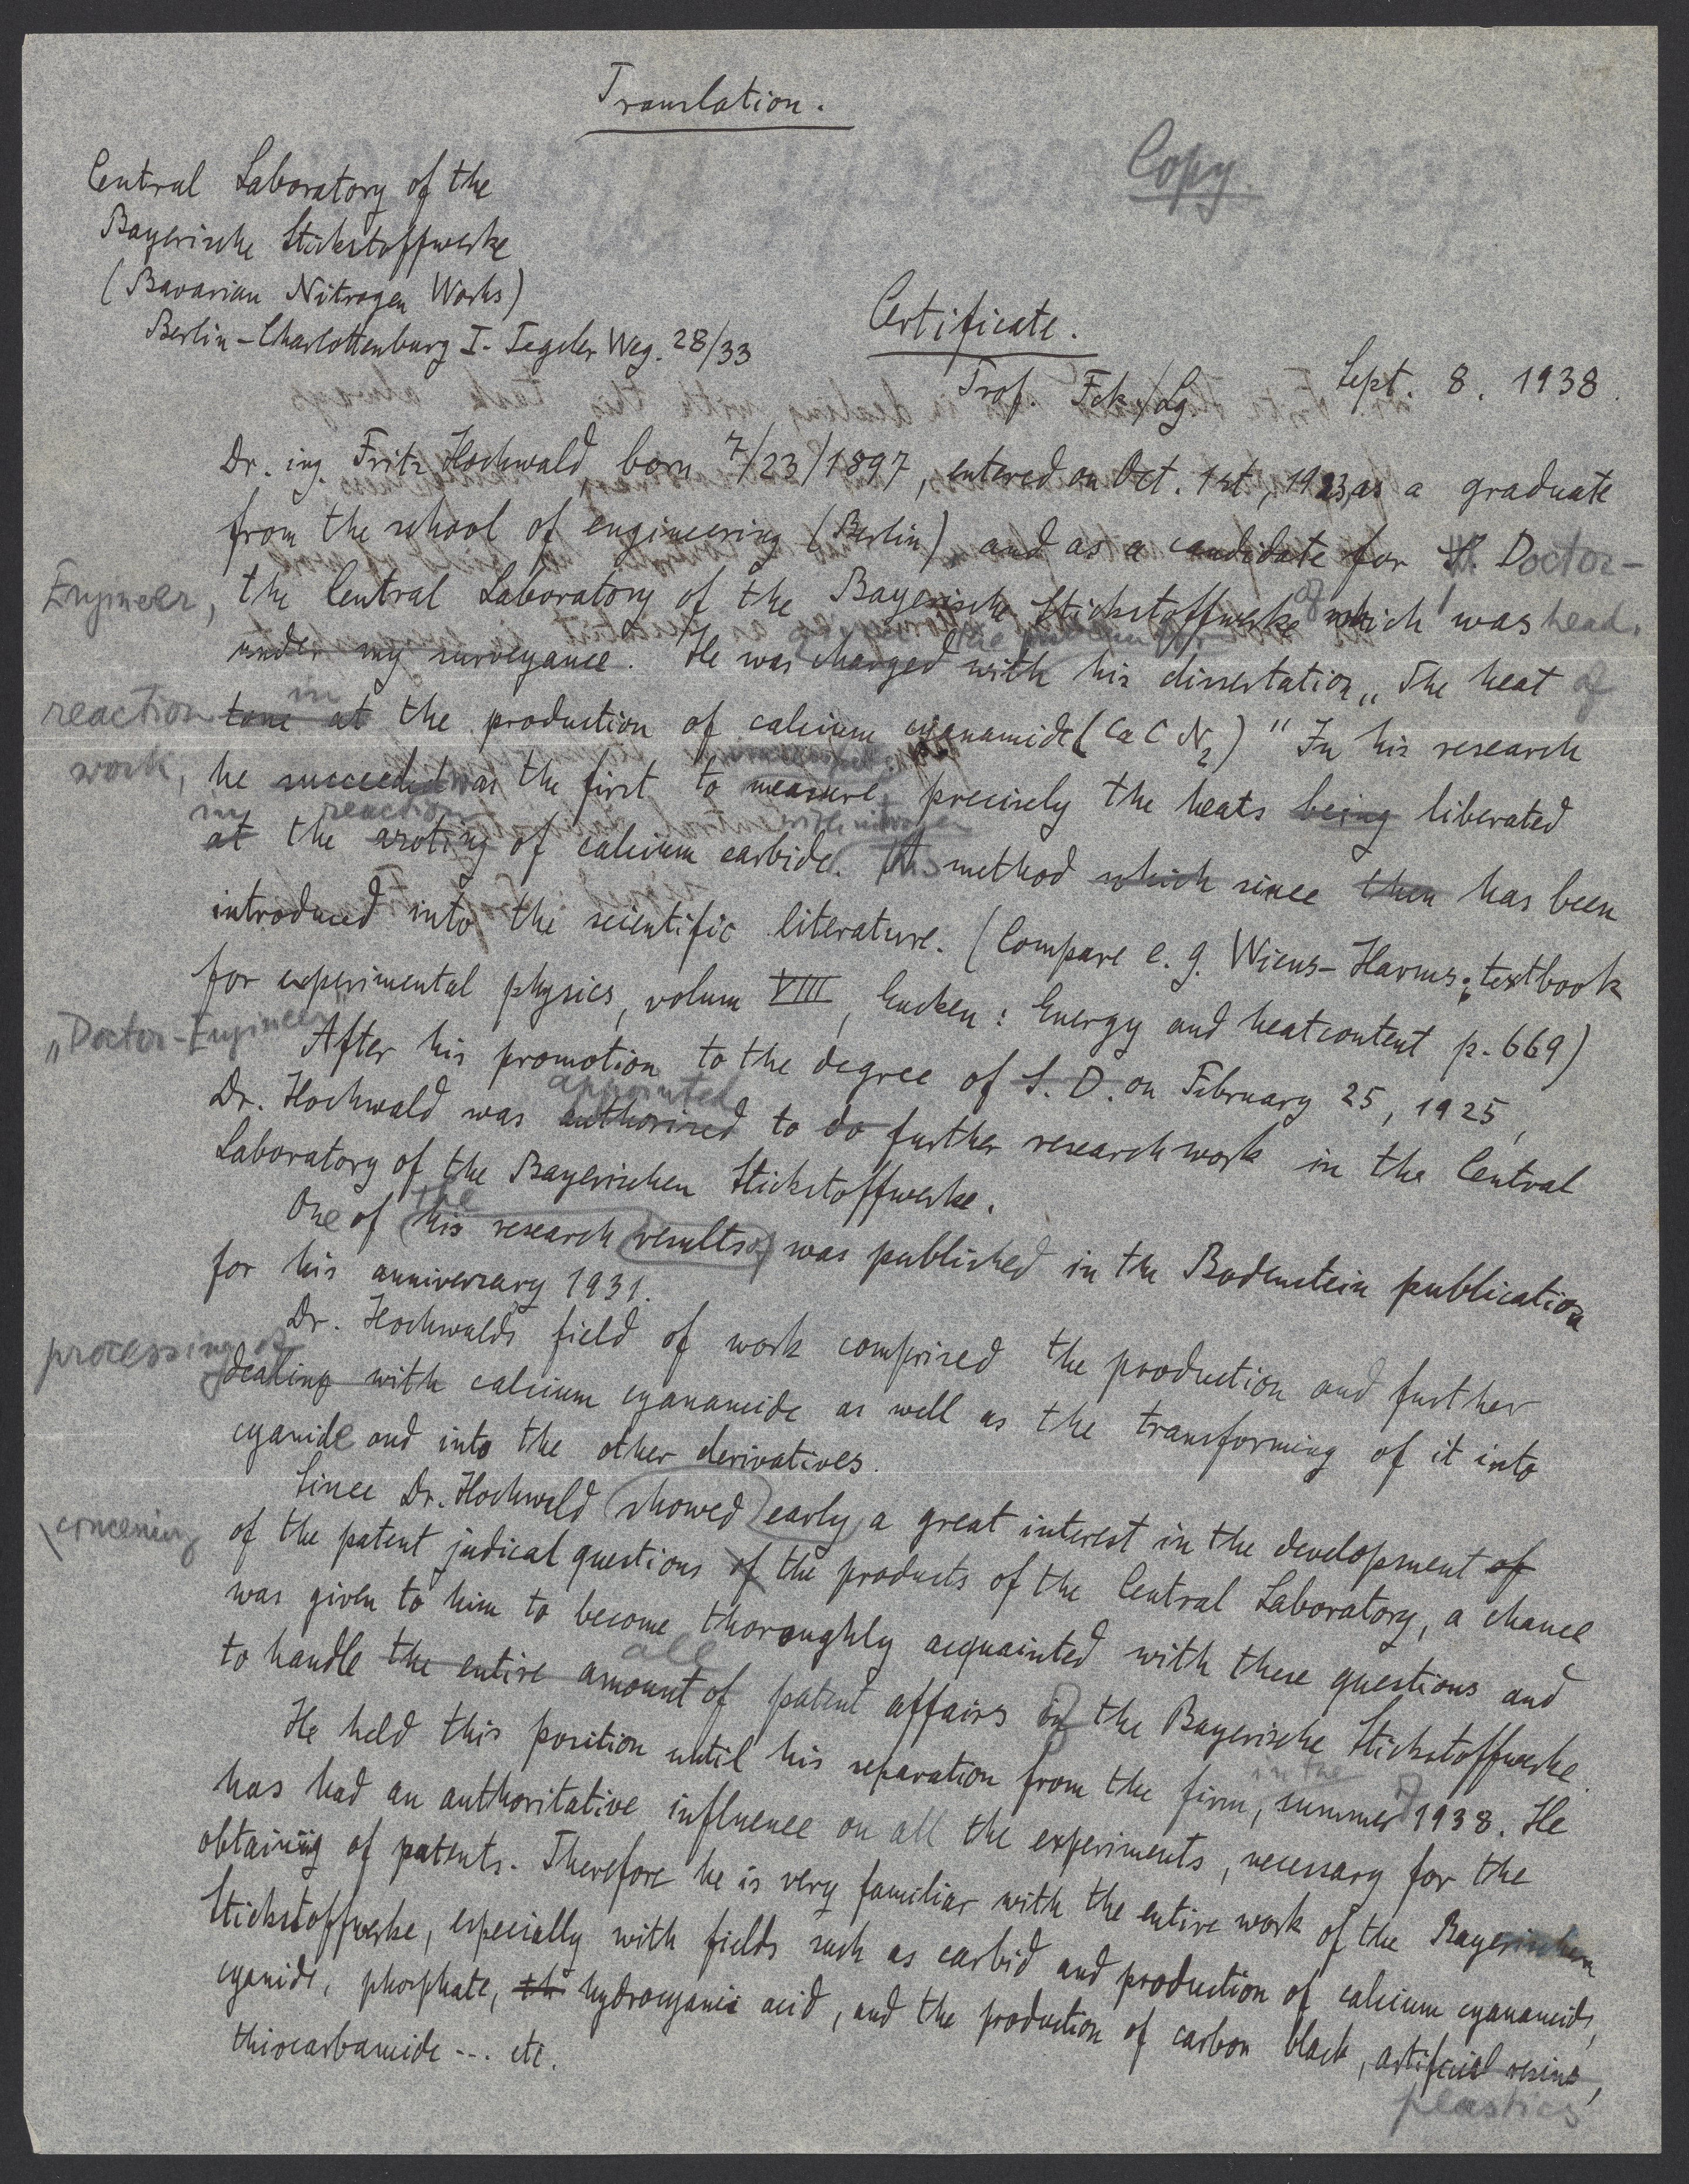 Translation.
Copy.
Central Laboratory of the
Bayerische Stickstoffwerke
(Bavarian Nitrogen Works)
Berlin-Charlottenburg I. Tegeler Weg. 28/33
Certificate.
Prof. Fck/Lg.
Sept. 8. 1938.
Dr. ing. Fritz Hochwald, born 7/23/1897, entered on Oct. 1st, 1923, as a graduate
from the school of engineering (Berlin) and as a candidate for Doctor-
Engineer, the Central Laboratory of the Bayerische Stickstoffwerke of which I was head.
under my surveyance. He was charged with his dissertation „The heat of
reaction tone at in the production of calcium cyanamide (CaCN2)" In his research
work, he succeeded was the first to measure precisely the heats being liberated
at the azoting reaction of calcium carbide with nitrogen. This method which since then has been
introduced into the scientific literature. (Compare e. g. Wiens-Harms: textbook
for experimental physics, volum VIII, Eucken: Energy and heatcontent p. 669)
After his promotion to the degree of S. D. „Doctor-Engineer" on February 25, 1925,
Dr. Hochwald was authorized appointed to do further research work in the Central
Laboratory of the Bayerischen Stickstoffwerke.
One of the his research results of was published in the Bodenstein publication
for his anniversary 1931.
Dr. Hochwald's field of work comprised the production and further
processing of dealing with calcium cyanamide as well as the transforming of it into
cyanide and into the other derivatives.
Since Dr. Hochwald showed early a great interest in the development of
concerning of the patent judical questions of the products of the Central Laboratory, a chance
was given to him to become thoroughly acquainted with these questions and
to handle the entire amount of all patent affairs of the Bayerische Stickstoffwerke.
He held this position until his separation from the firm, in the summer of 1938. He
has had an authoritative influence on all the experiments, necessary for the
obtaining of patents. Therefore he is very familiar with the entire work of the Bayerischen
Stickstoffwerke, especially with fields such as carbid and production of calcium cyanamide,
cyanide, phosphate, th hydrocyanic acid, and the production of carbon black, artificial resins,
plastics
thiocarbamide --- etc.